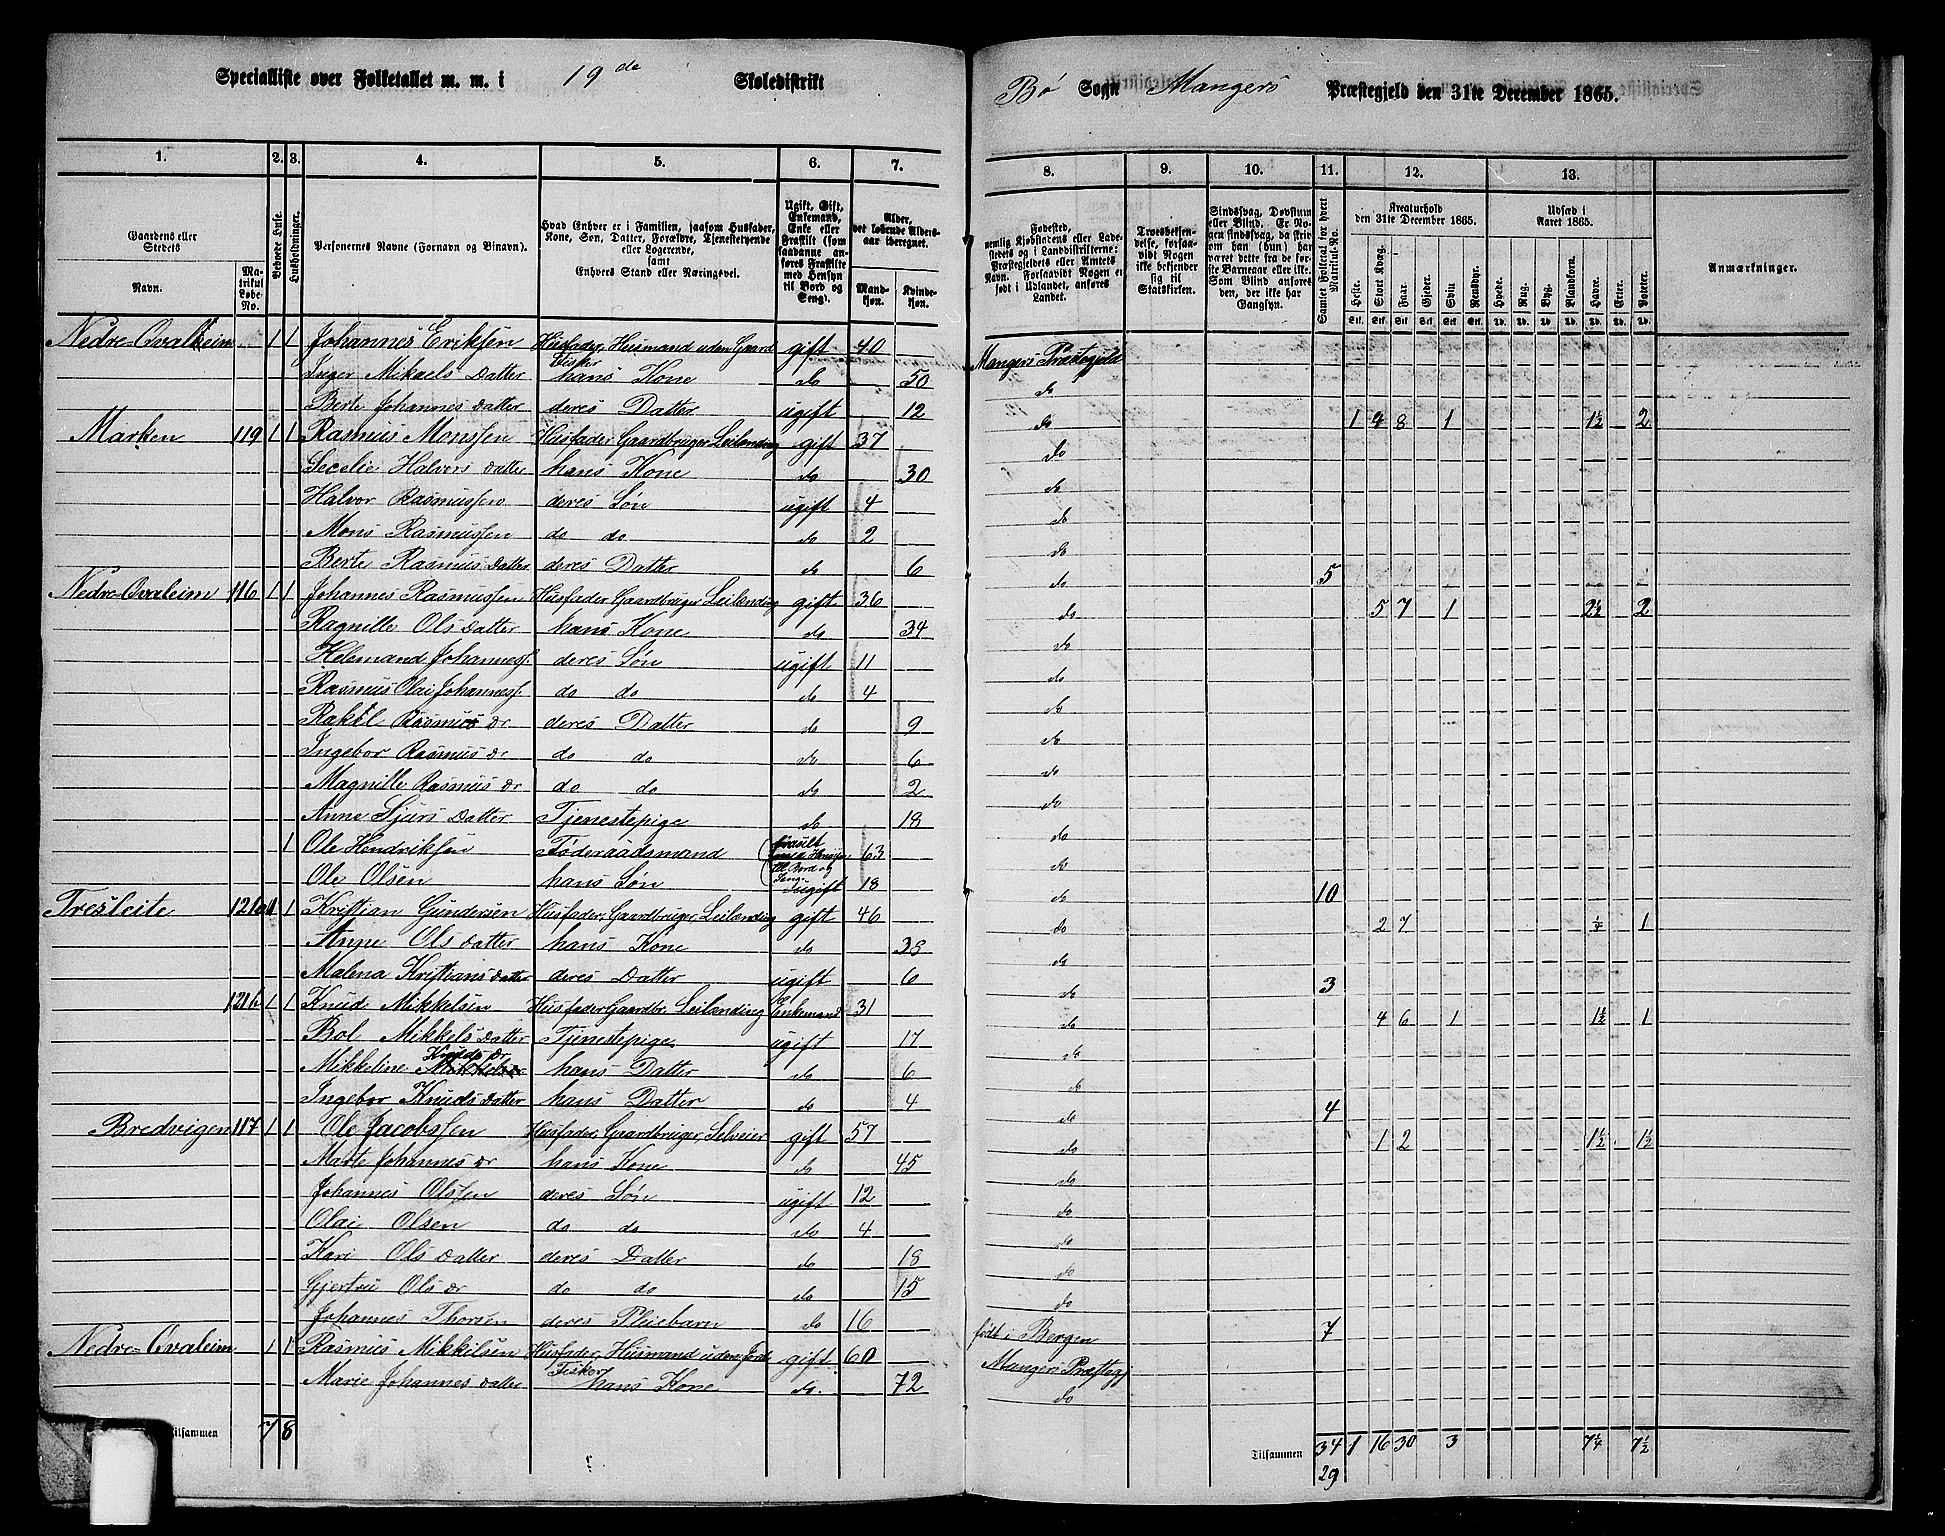 Specialliste over Folketallet m. m. i 19de Skoledistrikt Bø Sogn Mangers Præstegjeld den 31te December 1865.
1. 2. 3. 4. 5. 6. 7. 8. 9. 10. 11. 12. 13.
Gaardens eller Stedets Navn. Matrikul Løbe-No. Beboede Huse. Husholdninger. Personernes Navne (Fornavn og Binavn). Hvad Enhver er i Familien, saasom Husfader, Kone, Søn, Datter, Forældre, Tjenestetyende eller Logerende, samt Enhvers Stand eller Næringsvei. Ugift, Gift, Enkemand, Enke eller Fraskilt (som saadanne anføres Fraskilte med Hensyn til Bord og Seng). Alder, det løbende Aldersaar iberegnet. Mandkjøn. Kvindekjøn.
Fødested, nemlig Kjøbstadens eller Ladestedets og i Landdistrikterne: Præstegjeldets eller Amtets Navn. Forsaavidt Nogen er født i Udlandet, anføres Landet. Troesbekjendelse, forsaavidt Nogen ikke bekjender sig til Statskirken. Sindssvag, Døvstum eller Blind. Er Nogen sindssvag, da skrives om han (hun) har været dette fra de første Barneaar eller ikke. Som Blind ansøres den, der ikke har Gangsyn. Samlet Folketal for hvert Matrikul-No. Kreaturhold den 31te December 1865. Heste. Stort Kvæg. Faar. Gjeder. Sviin. Rensdyr. Udsæd i Aaret 1865. Hvede. Rug. Byg. Blandkorn. Havre. Erter. Poteter. Anmærkninger.
Nedre-Qvalheim 1 1 Johannes Eriksen Husfader, Husmand uden Gaard Fisker gift 40 Mangers Præstegjeld
Inger Mikaels Datter hans Kone do 50 do
Berte Johannes Datter deres Datter ugift 12 do
Marken 119 1 1 Rasmus Monssen Husfader, Gaardbruger, Leilending gift 37 do 1 4 8 1 1½ 2
Secelie Halvors Datter hans Kone do 30 do
Halvor Rasmussen deres Søn ugift 4 do
Mons Rasmussen do do do 2 do
Berte Rasmus Datter deres Datter do 6 do 5
Nedre-Qvaleim 116 1 1 Johannes Rasmussen Husfader, Gaardbruger, Leilending gift 36 do 5 7 1 2½ 2
Ragnille Ols Datter hans Kone do 34 do
Helemand Johanness. deres Søn ugift 11 do
Rasmus Olai Johanness. do do do 4 do
Rakel Rasmus Dr deres Datter do 9 do
Ingebor Rasmus Dr do do do 6 do
Magnille Rasmus Dr do do do 2 do
Anne Sjurs Datter Tjenestepige do 18 do
1 Ole Hendriksen Föderaadsmand fraskilt med Hensyn til Bord og Seng 63 do
Ole Olsen hans Søn ugift 18 do 10
Tresleite 121a 1 1 Kristian Gundersen Husfader, Gaardbruger, Leilending gift 46 do 2 7 ¼ 1
Anne Ols Datter hans Kone do 38 do
Malena Kristians Datter deres Datter ugift 6 do 3
121b 1 1 Knud Mikkelsen Husfader Gaardbr. Leilending Enkemand 31 do 4 6 1 1½ 1
Bol Mikkels Datter Tjenestepige ugift 17 do
Mikkeline Knuds Dr hans Datter do 6 do
Ingebor Knuds Datter hans Datter do 4 do 4
Bredvigen 117 1 1 Ole Jacobssen Husfader, Gaardbruger, Selveier gift 57 do 1 2 1½ 1½
Marte Johannes Dr hans Kone do 45 do
Johannes Olssen deres Søn ugift 12 do
Olai Olsen do do do 4 do
Kari Ols Datter deres Datter do 18 do
Gjertru Ols Dr do do do 15 do
Johannes Thorsen deres Pleiebarn do 16 født i Bergen 7
Nedre-Qvaleim 1 1 Rasmus Mikkelsen Husfader, Husmand uden Jord Fisker gift 60 Mangers Præstegj
Marie Johannes Datter hans Kone do 72 do
Tilsammen 7 8 Tilsammen 34 1 16 30 3 7¼ 7½
29